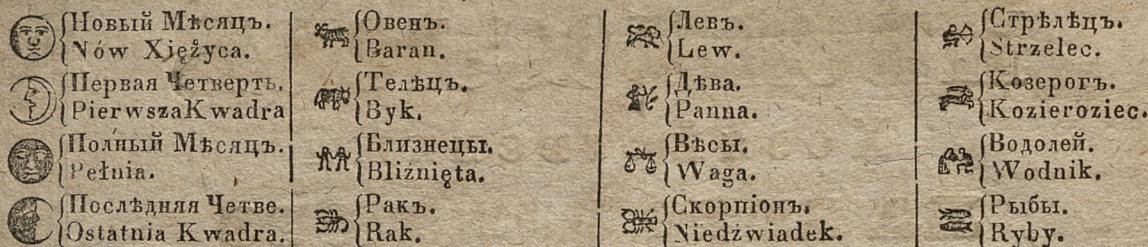 Новый Мѣсяцъ.
Nów Xiężyca.
Первая Четверть.
PierwszaKwadra
Полный Мѣсяцъ.
Pełnia.
Послѣдняя Четве.
Ostatnia Kwadra.
Овенъ.
Baran.
Телѣцъ.
Byk.
Близнецы.
Bliźnięta.
Ракъ.
Rak.
Левъ.
Lew.
Дѣва.
Panna.
Вѣсы.
Waga.
Скорпіонъ.
Niedźwiadek.
Стрѣлѣцъ.
Strzelec.
Козерогъ.
Kozieroziec.
Водолей.
Wodnik.
Рыбы.
Ryby.